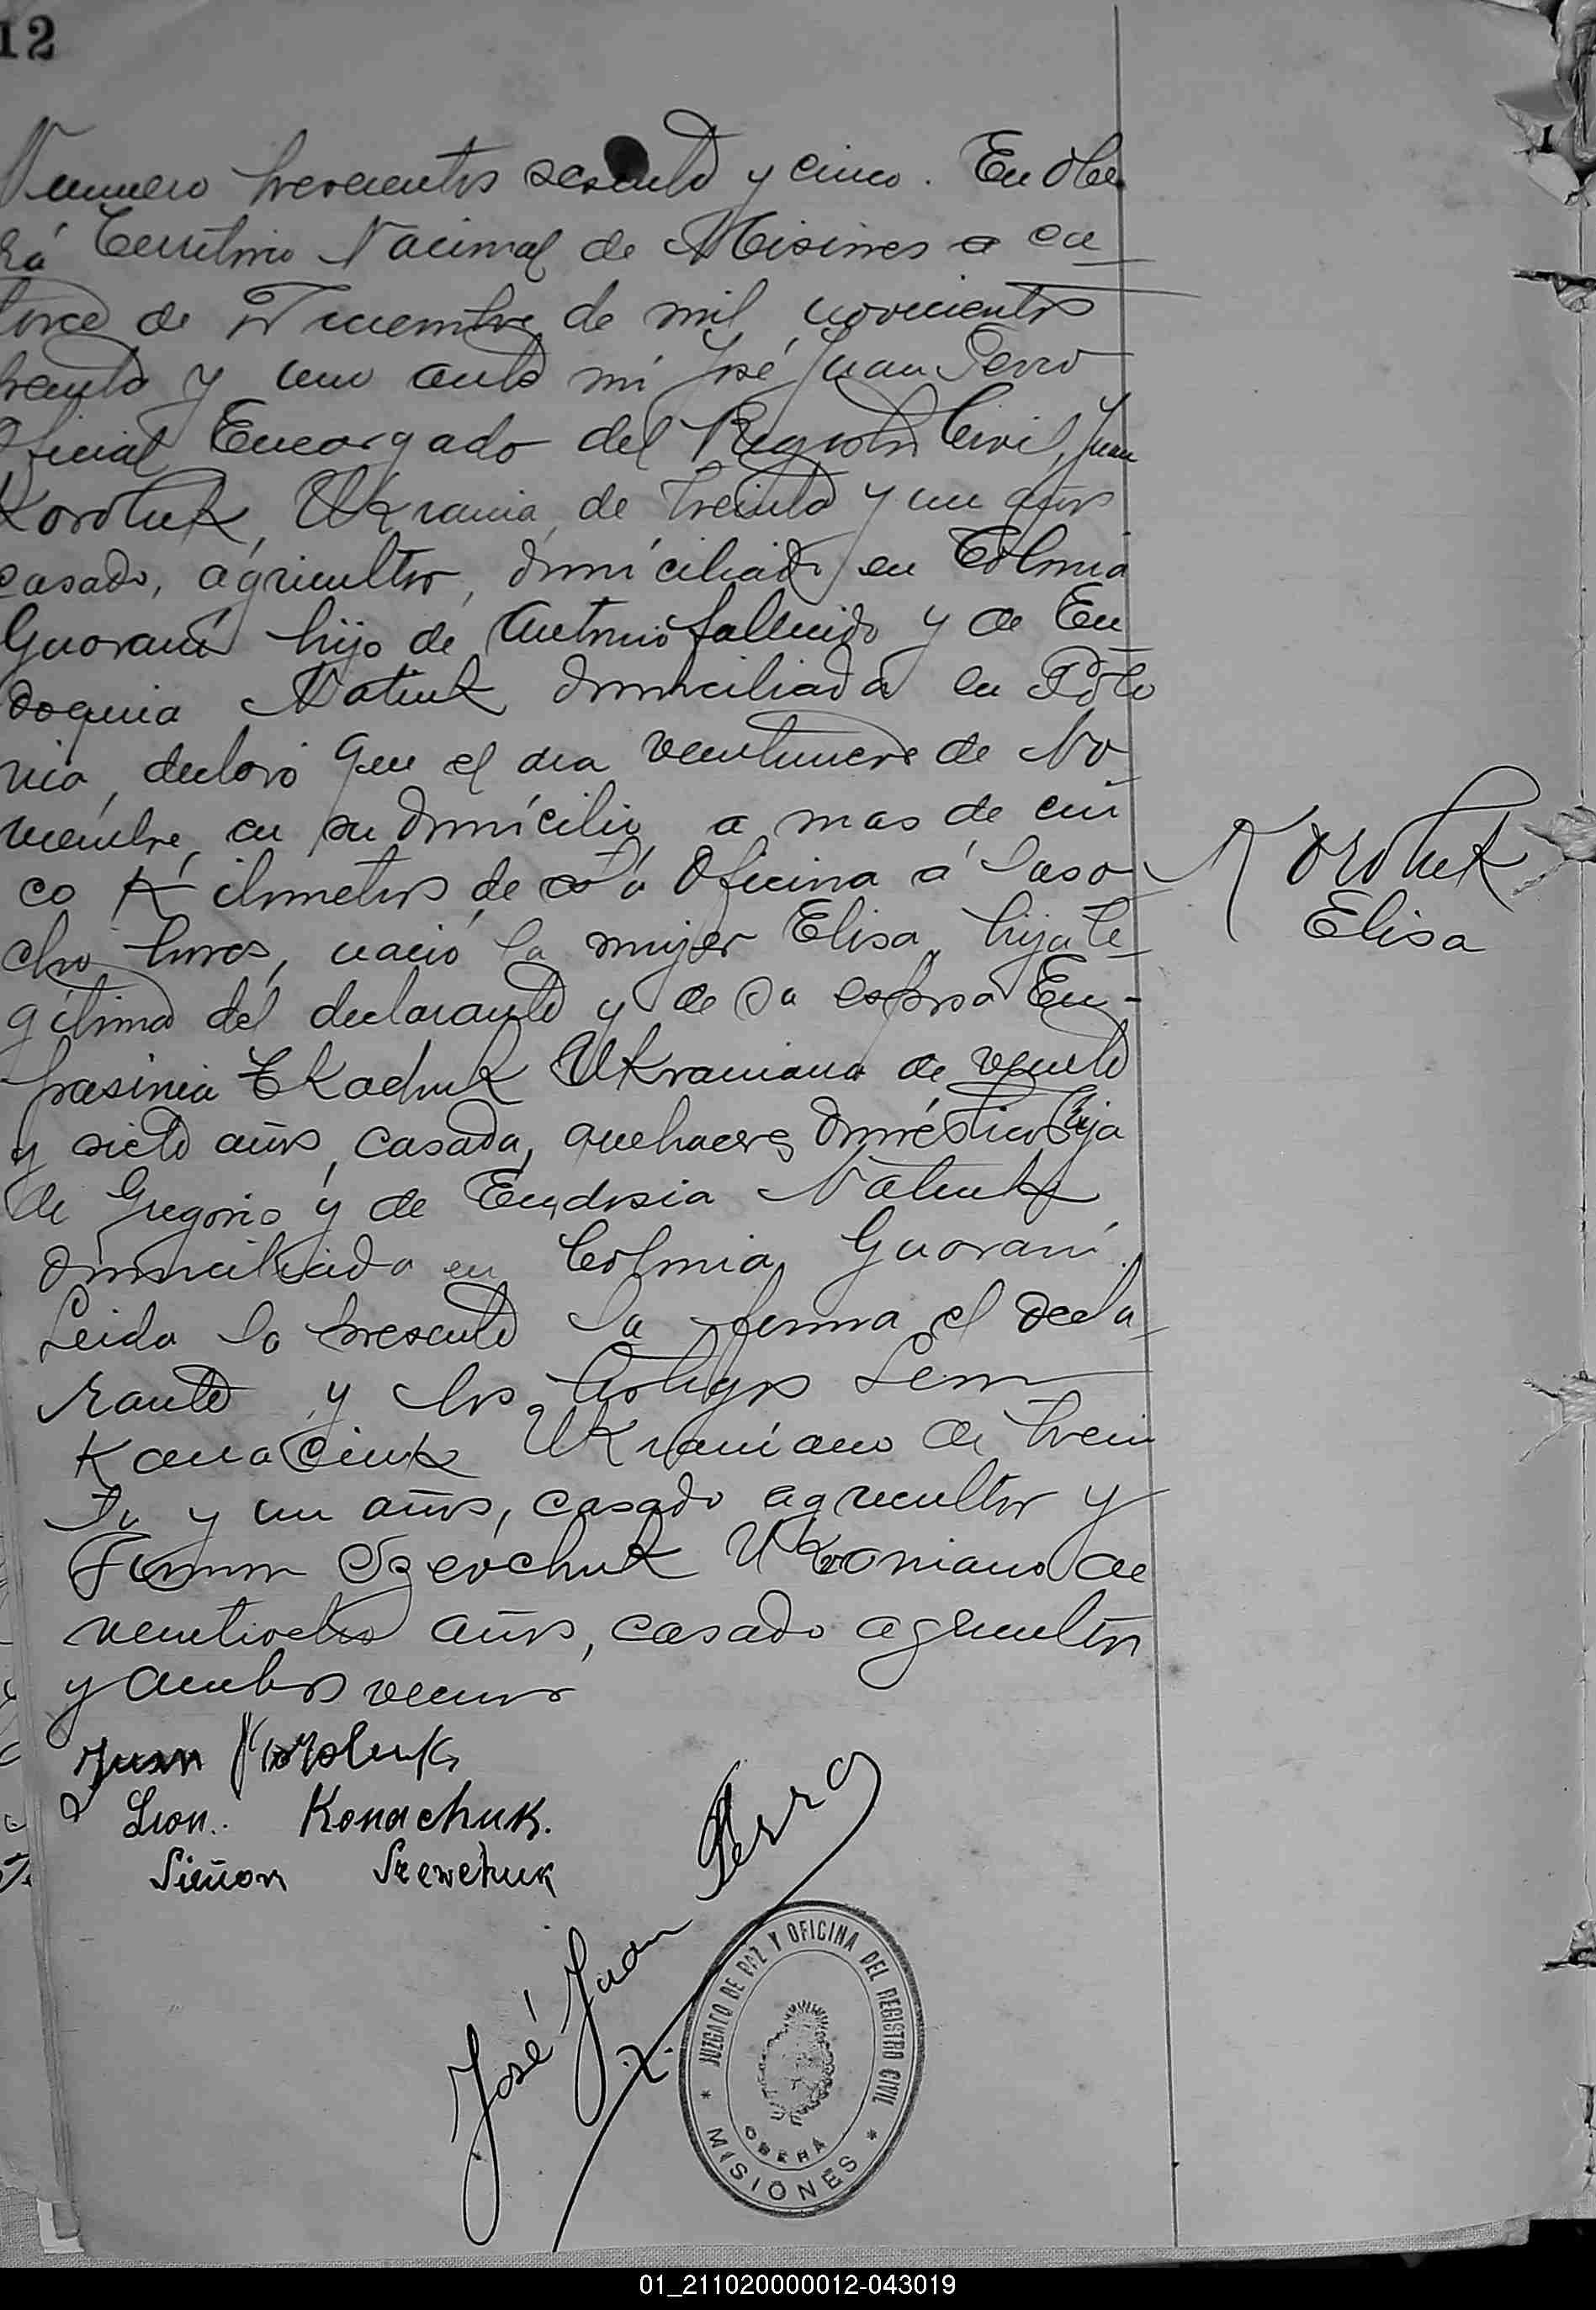 12
Numero trescientos sesenta y cinco. En Obe
rá Territorio Nacional de Misiones a ca
torce de Diciembre de mil novecientos
treinta y uno ante mi José Juan Perro
Oficial Encargado del Registro Civil, Juan
Koroluk, Ukrania, de treinta y un años
casado, agricultor, domiciliado en Colonia
Guarani hijo de Antonio fallecido y de Eu
doquia Natiuk domiciliada en Polo
nia, declaró que el dia veintinueve de No
viembre, en su domicilio a mas de cin
co Kilometros de esta Oficina a las o
cho horas, nació la mujer Elisa, hija le
gitima del declarante y de su esposa Eu-
frasinia Tkachuk Ukraniana de veinte
y siete años, casada, quehaceres domésticos hija
de Gregorio y de Eudosia Natiuk
domiciliada en Colonia Guarani.
Leida la presente la firma el decla
rante y los testigos Leon
Konaciuk Ukraniano de trein
ta y un años, casado agricultor y
Simon Szevchuk Ukraniano de
veintiocho años, casado agricultor
y ambos vecinos
Koroluk
Elisa
Juan Koroluk
Lion. Konachuk.
Siñon Szewchuk
José Juan Perro
JUZGADO DE PAZ Y OFICINA DEL REGISTRO CIVIL
OBERÁ
* MISIONES *
01_211020000012-043019